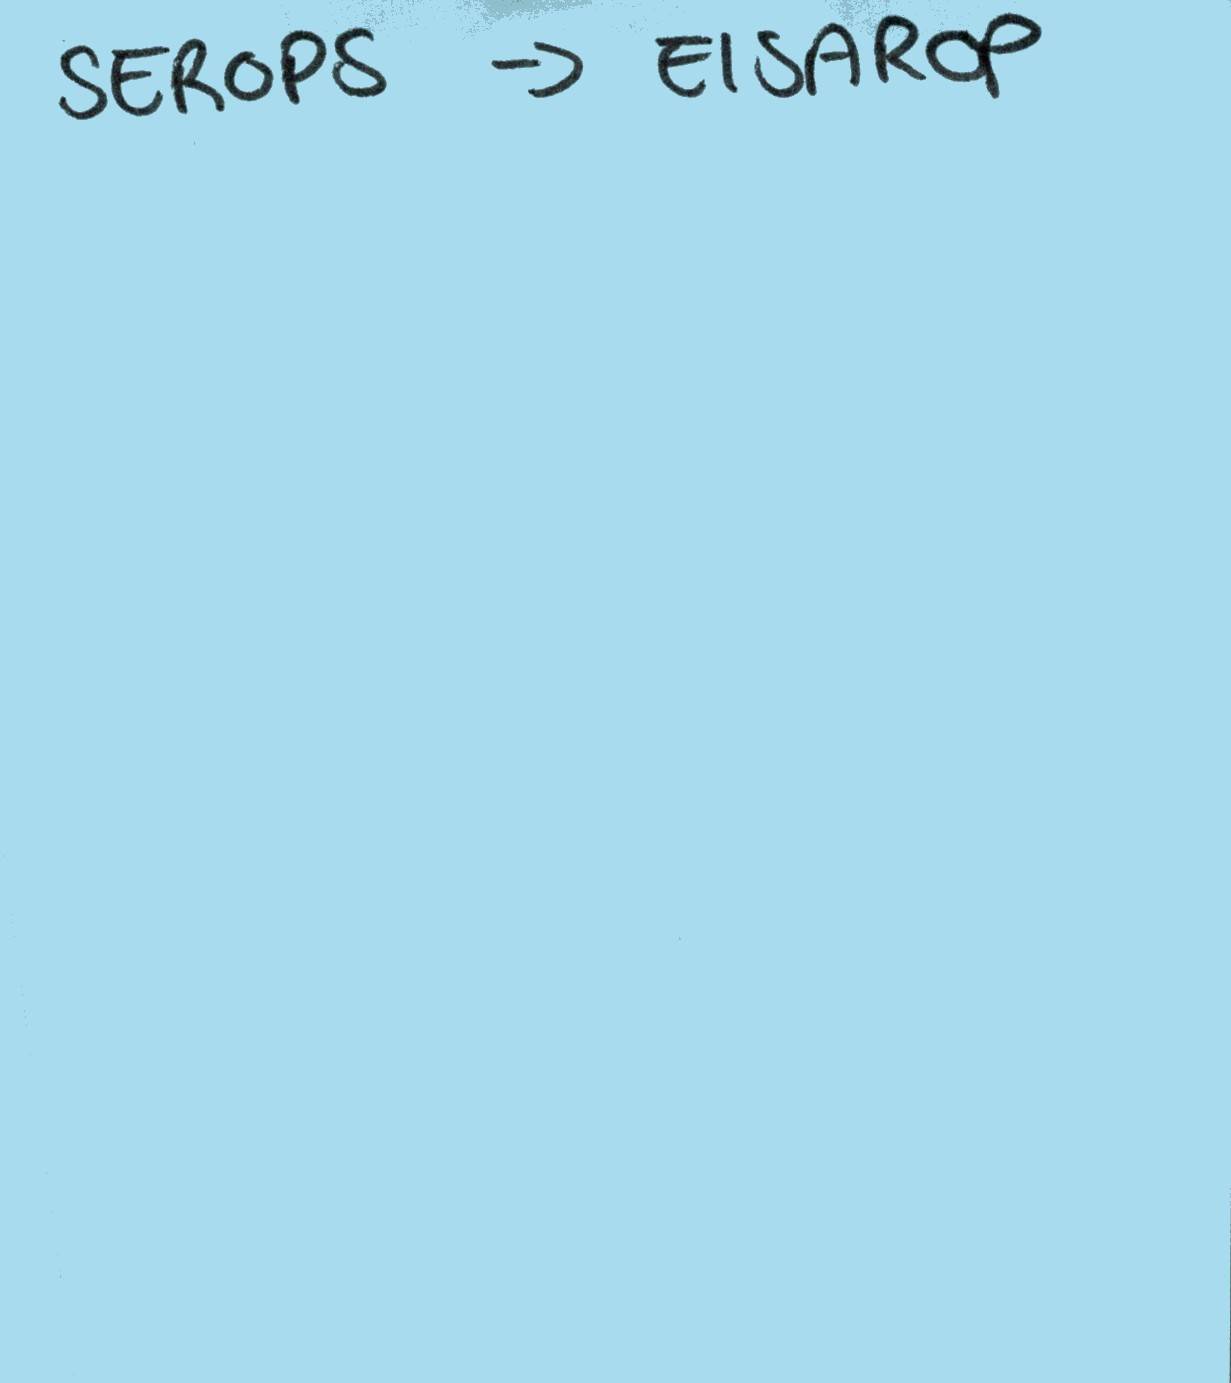 SEROPS -> EISAROP